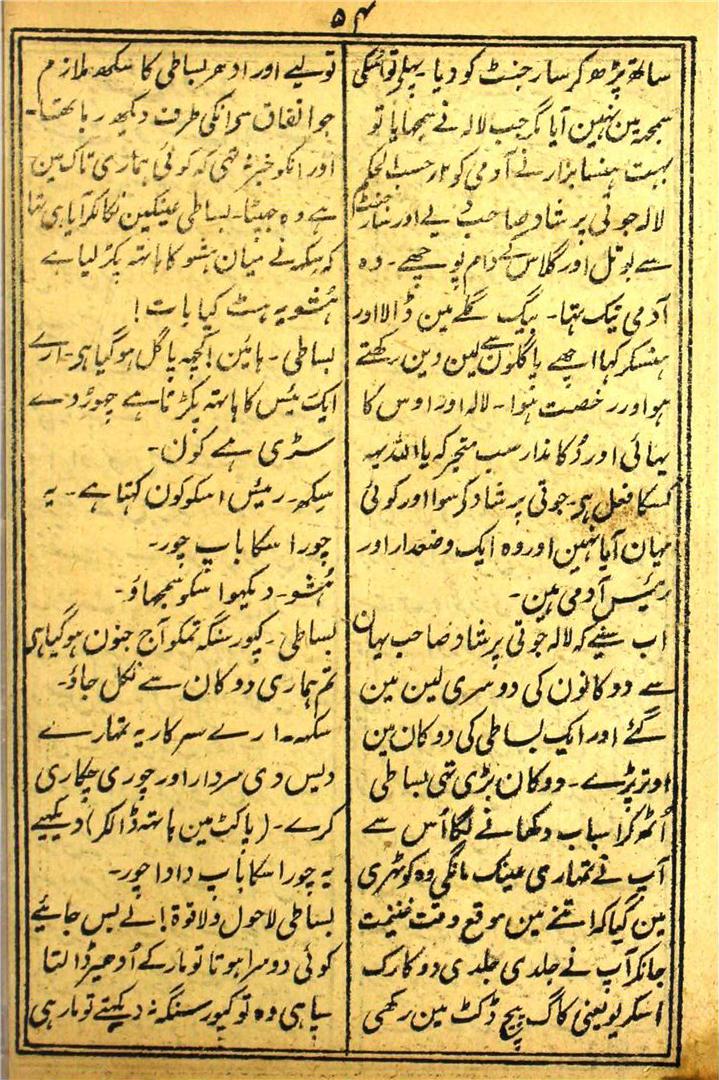 ۵۴
ساتھ پڑھ کر سارجنٹ کو دیا۔ پہلے تو اسکی
سمجھ مین نہین آیا مگر جب لالہ نے سمجھایا تو
بہت ہنسا بزار نے آدمی کو مار حسب الحکم
لالہ جوتی پرشاد صاحب کے دیے اور سارجنٹ
سے بوتل اور گلاس کے دام پوچھے۔ وہ
آدمی نیک تہا۔ بیگ گلے مین ڈالا اور
ہنسکر کہا اچھے پاگلون سے لین دین رکھتے
ہو اور رخصت ہوا۔ لالہ اور اوس کا
بہائی اور دُکاندار سب متحیر کہ یا اللہ یہ
کسکا فعل ہی۔ جوتی پرشاد کے سوا اور کوئی
یہان آیا نہین اور وہ ایک وضعدار اور
رئیس آدمی ہین۔
اب سنیے کہ لالہ جوتی پرشاد صاحب یہان
سے دوکانون کی دوسری لین مین
گئے اور ایک بساطی کی دوکان مین
اوتر پڑے۔ دوکان بڑی تہی بساطی
اُٹھ کر اسباب دکھانے لگا اُس سے
آپ نے تمہاری عینک مانگی وہ کوٹھری
مین گیا کہ اتنے مین موقع وقت غنیمت
جانکر آپ نے جلدی جلدی دو کارک
اسکریو یعنی کاگ پیچ ڈکٹ مین رکھی
تولیے اور ادھر بساطی کا سکھ ملازم
جو اتفاق سے انکی طرف دیکھ رہا تھا۔
اور انکو خبر نہ تھی کہ کوئی ہماری تاک مین
ہے وہ جھپٹا۔ بساطی عینکین نکالکر آیا ہی تہا
کہ سکھ نے میان ہشو کا ہاتہ پکڑ لیا ہے
ہُشو یہ ہٹ کیا بات!
بساطی۔ ہائین! کچہہ پاگل ہو گیا ہی۔ ارے
ایک رئیس کا ہاتہ پکڑتا ہے چھوڑ دے
سڑی ہے کون۔
سکھ۔ رئیس اسکو کون کہتا ہے۔ یہ
چور اسکا باپ چور۔
ہُشو۔ دیکھو اسکو سمجھاؤ۔
بساطی۔ کپور سنگہ تمکو آج جنون ہو گیا ہی
تم ہماری دوکان سے نکل جاؤ۔
سکھ۔ ارے سرکار یہ تمہارے
دیس دی سردار اور چوری چکاری
کرے۔ (پاکٹ مین ہاتہ ڈالکر) دیکھیے
یہ چور اسکا باپ دادا چور۔
بساطی لاحول ولا قوۃ! لے بس جائیے
کوئی دوسرا ہوتا تو مار کے اُدھیڑ ڈالتا
پاہی وہ تو کپور سنگہ نہ دیکہتے تو مار ہی